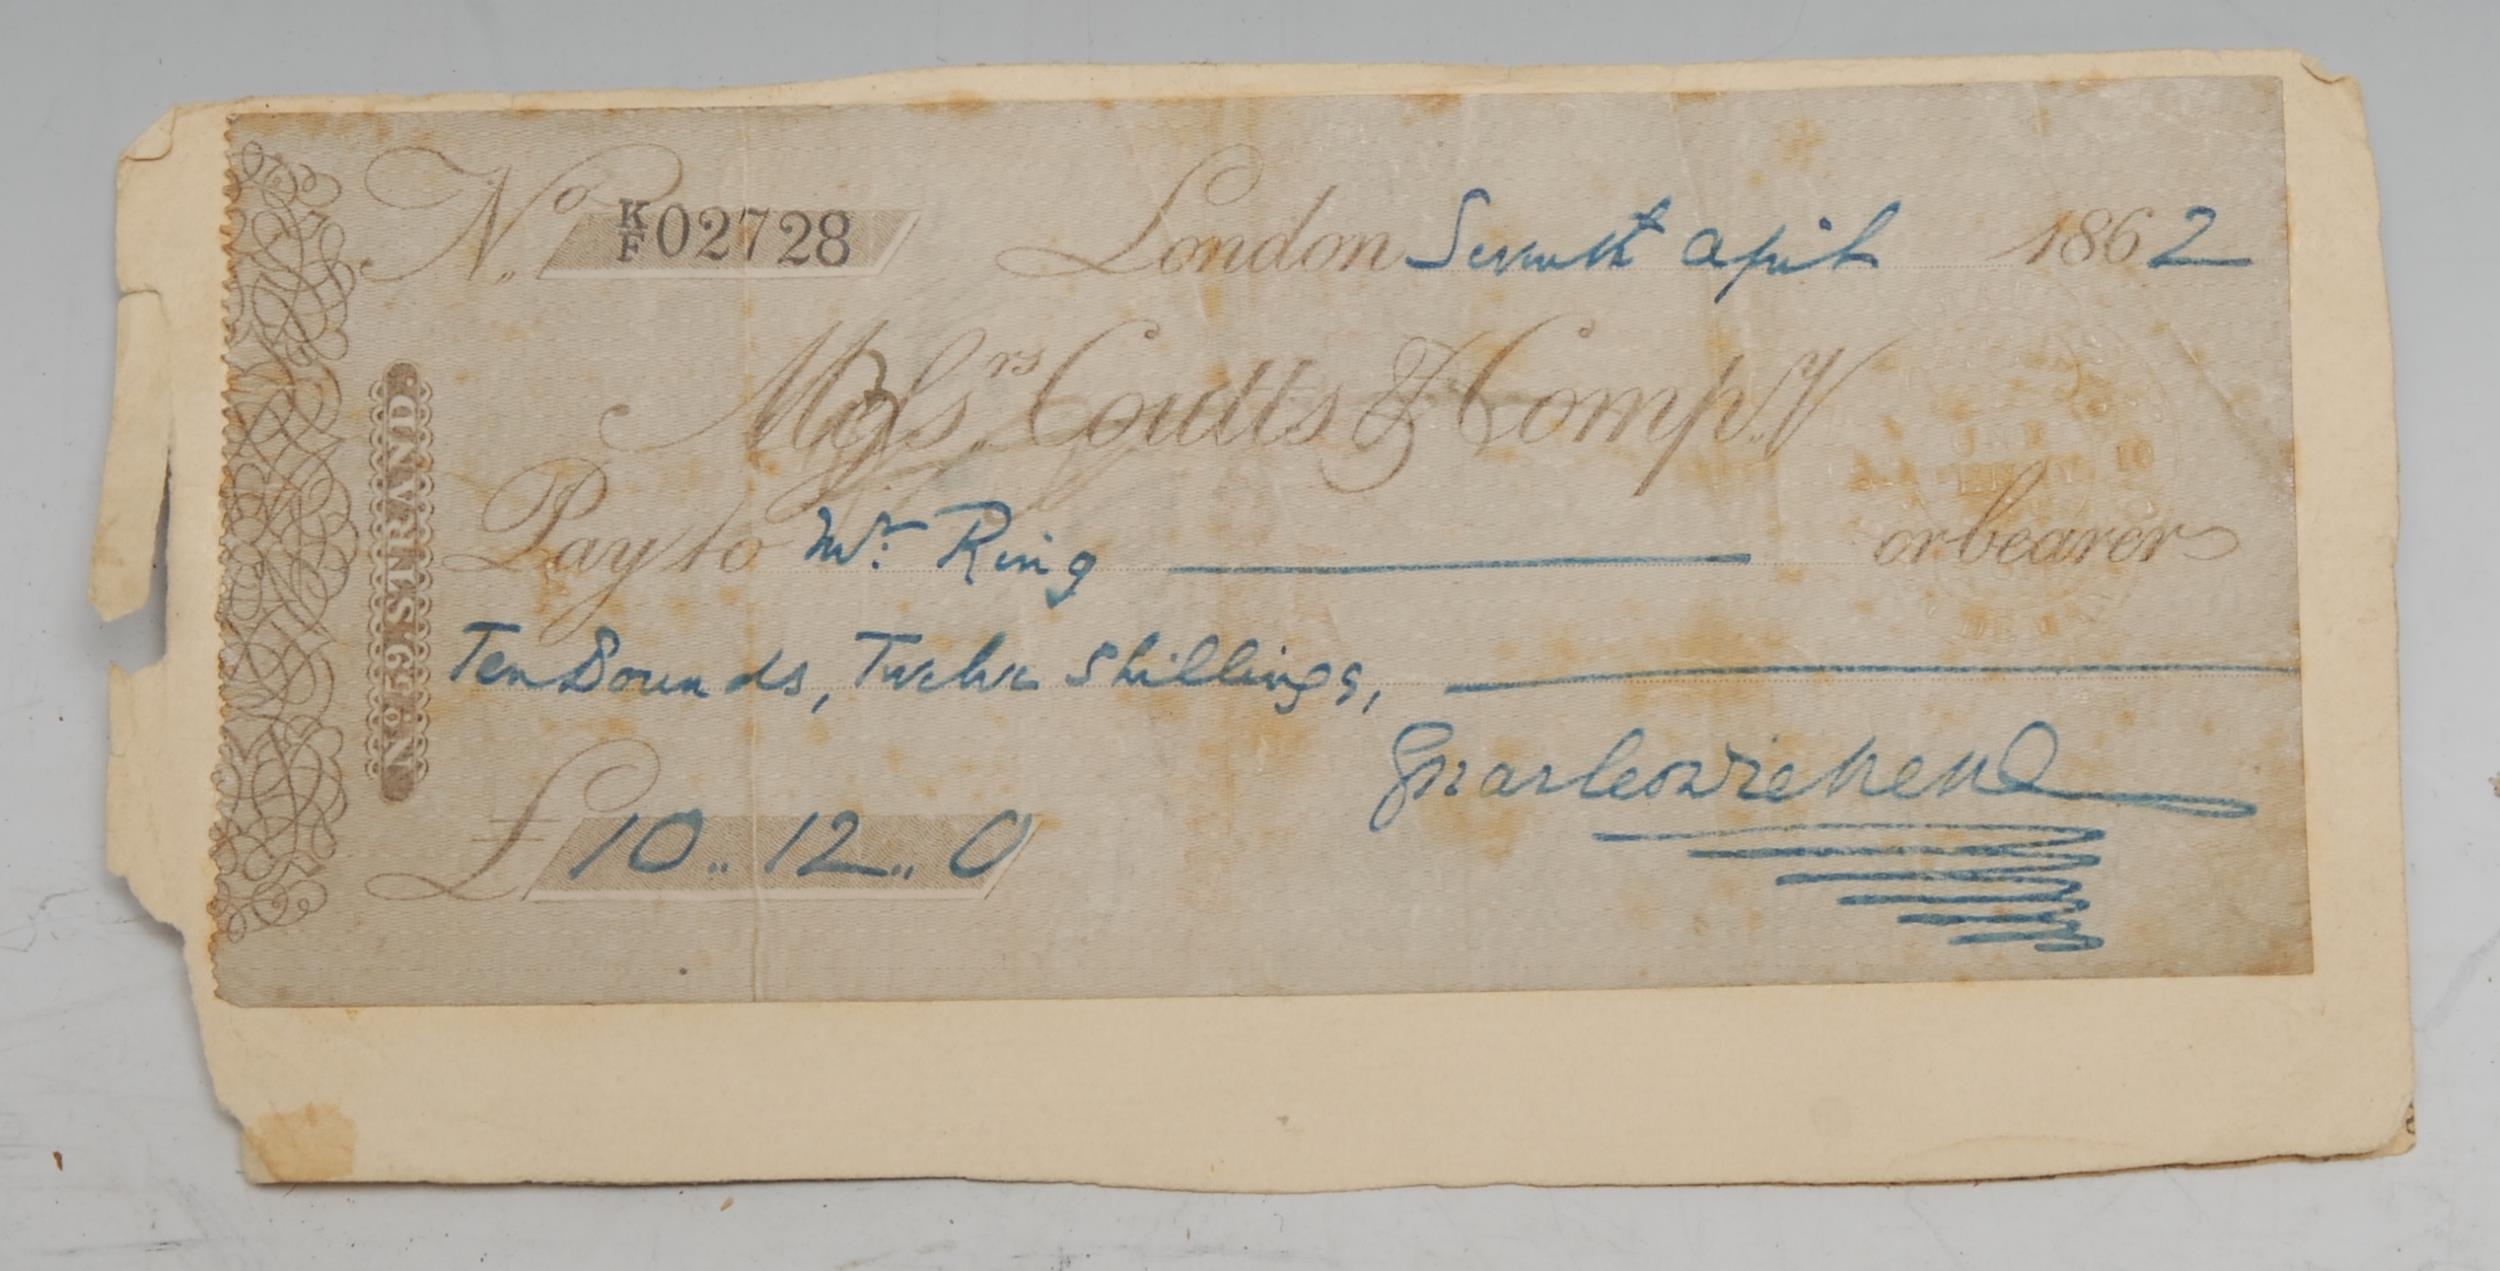 No. K/F 02728 London Seventh April 1862
Messrs. Coutts & Compy.
Pay to Mr. Ring or bearer
Ten Pounds, Twelve Shillings,
£ 10..12..0
Charles Dickens
No. 59 STRAND.
ONE
PENNY
10